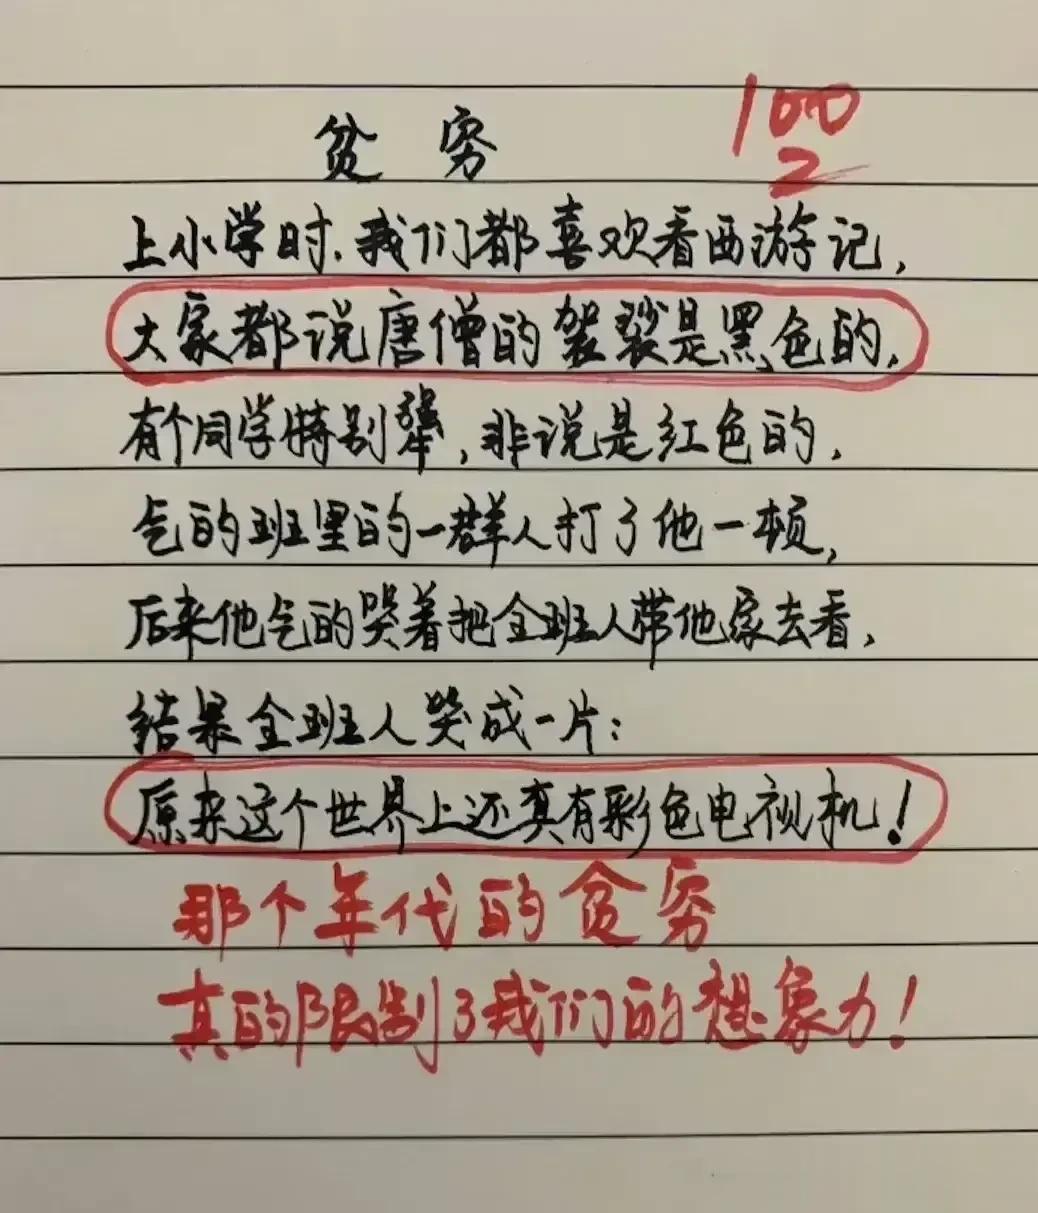 贫穷
100
上小学时、我们都喜欢看西游记，
大家都说唐僧的袈裟是黑色的，
有个同学特别犟，非说是红色的，
气的班里的一群人打了他一顿，
后来他气的哭着把全班人带他家去看，
结果全班人哭成一片：
原来这个世界上还真有彩色电视机！
那个年代的贫穷
真的限制了我们的想象力！